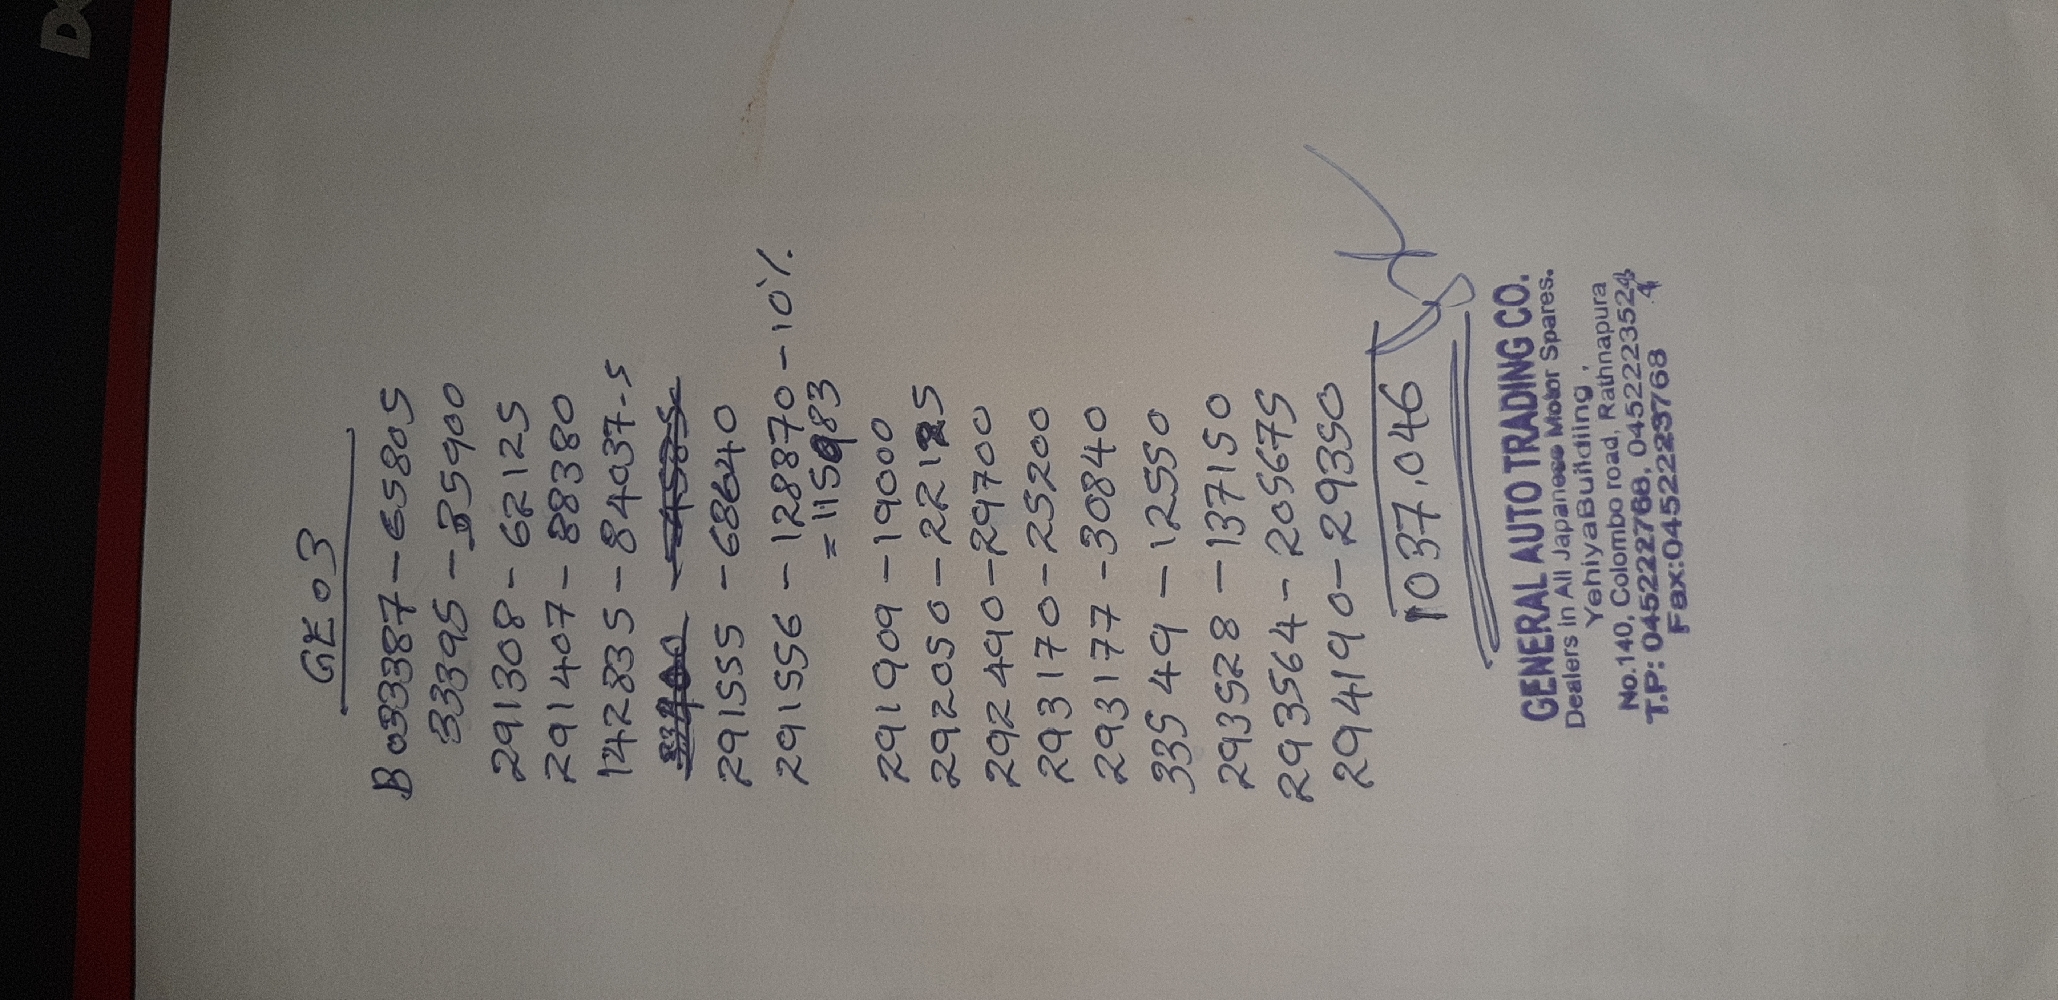 GE 03
B033387-65805
33395-35900
291308-62125
291407-88380
142835-84037-5
291555-68640
291556-128870-10%
=115983
291909-19000
292050-22125
292490-29700
293170-25200
293177-30840
33549-12550
293528-137150
293564-205675
294190-29350
1037,046
GENERAL AUTO TRADING CO.
Dealers in All Japanese Motor Spares.
Yehiya Building,
No.140, Colombo road, Rathnapura
T.P: 0452222768, 0452223524
4
Fax:0452223768